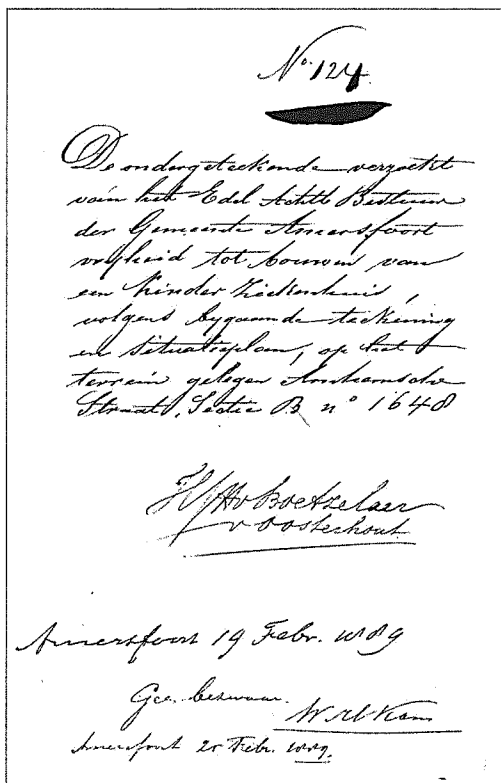 No. 124.
De ondergeteekende verzoekt
van het Edel Achtb Bestuur
der Gemeente Amersfoort
vrijheid tot bouwen van
een Kinder Ziekenhuis,
volgens bygaande teekening
en situatieplan, op het
terrein gelegen Arnhemsche
Straat, Sectie B no 1648
v Boetzelaer
v Oosterhout
Amersfoort 19 Febr. 1889
Geen bezwaar.
W Kam
Amersfoort 20 Febr. 1889.